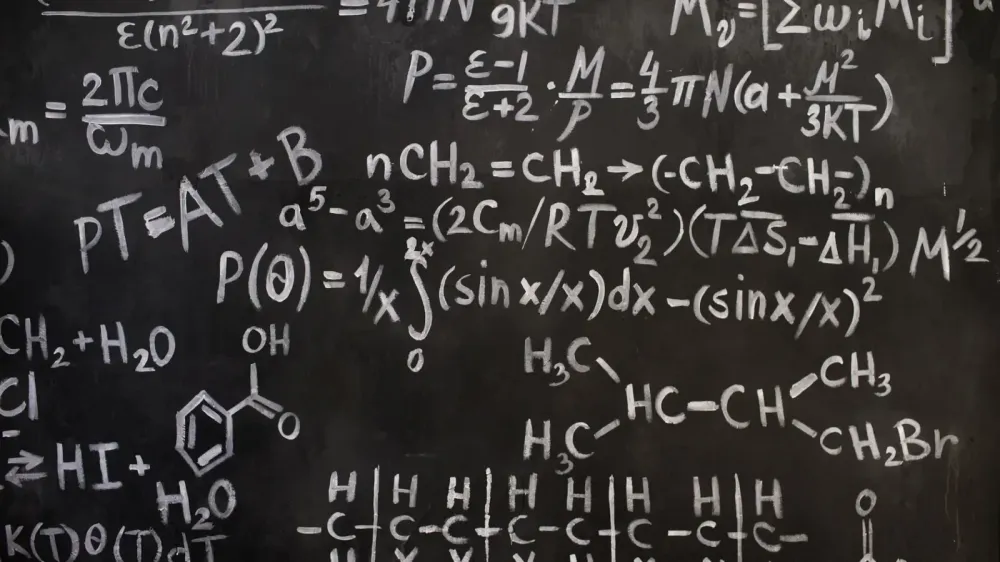 ε(n²+2)²
= 4πN
9KT
Mᵥ=[Σωᵢ Mᵢ]
m = 2πc/ωₘ
P= ε-1/ε+2 · M/P = 4/3 πN(a + M²/3KT)
PT=AT+B
nCH₂=CH₂→(-CH₂-CH₂-)ₙ
a⁵-a³=(2Cₘ/RTv₂²)(TΔS₁-ΔH₁) M^½
P(θ)=1/x ∫₀²ˣ (sin x/x)dx-(sinx/x)²
CH₂+H₂O
Cl
⇄HI+
H₂O
OH
O
H₃C
CH₃
HC-CH
H₃C
CH₂Br
H H H H H H H H
-C-C-C-C-C-C-C-C-
O
K(T)θ(T)dT